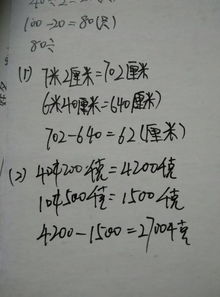 40÷2=20(只)
100-20=80(只)
80÷
(1) 7米2厘米=702厘米
6米40厘米=640厘米)
702-640=62(厘米)
(2) 4千200千克=4200千克
1千500千克=1500千克
4200-1500=2700千克